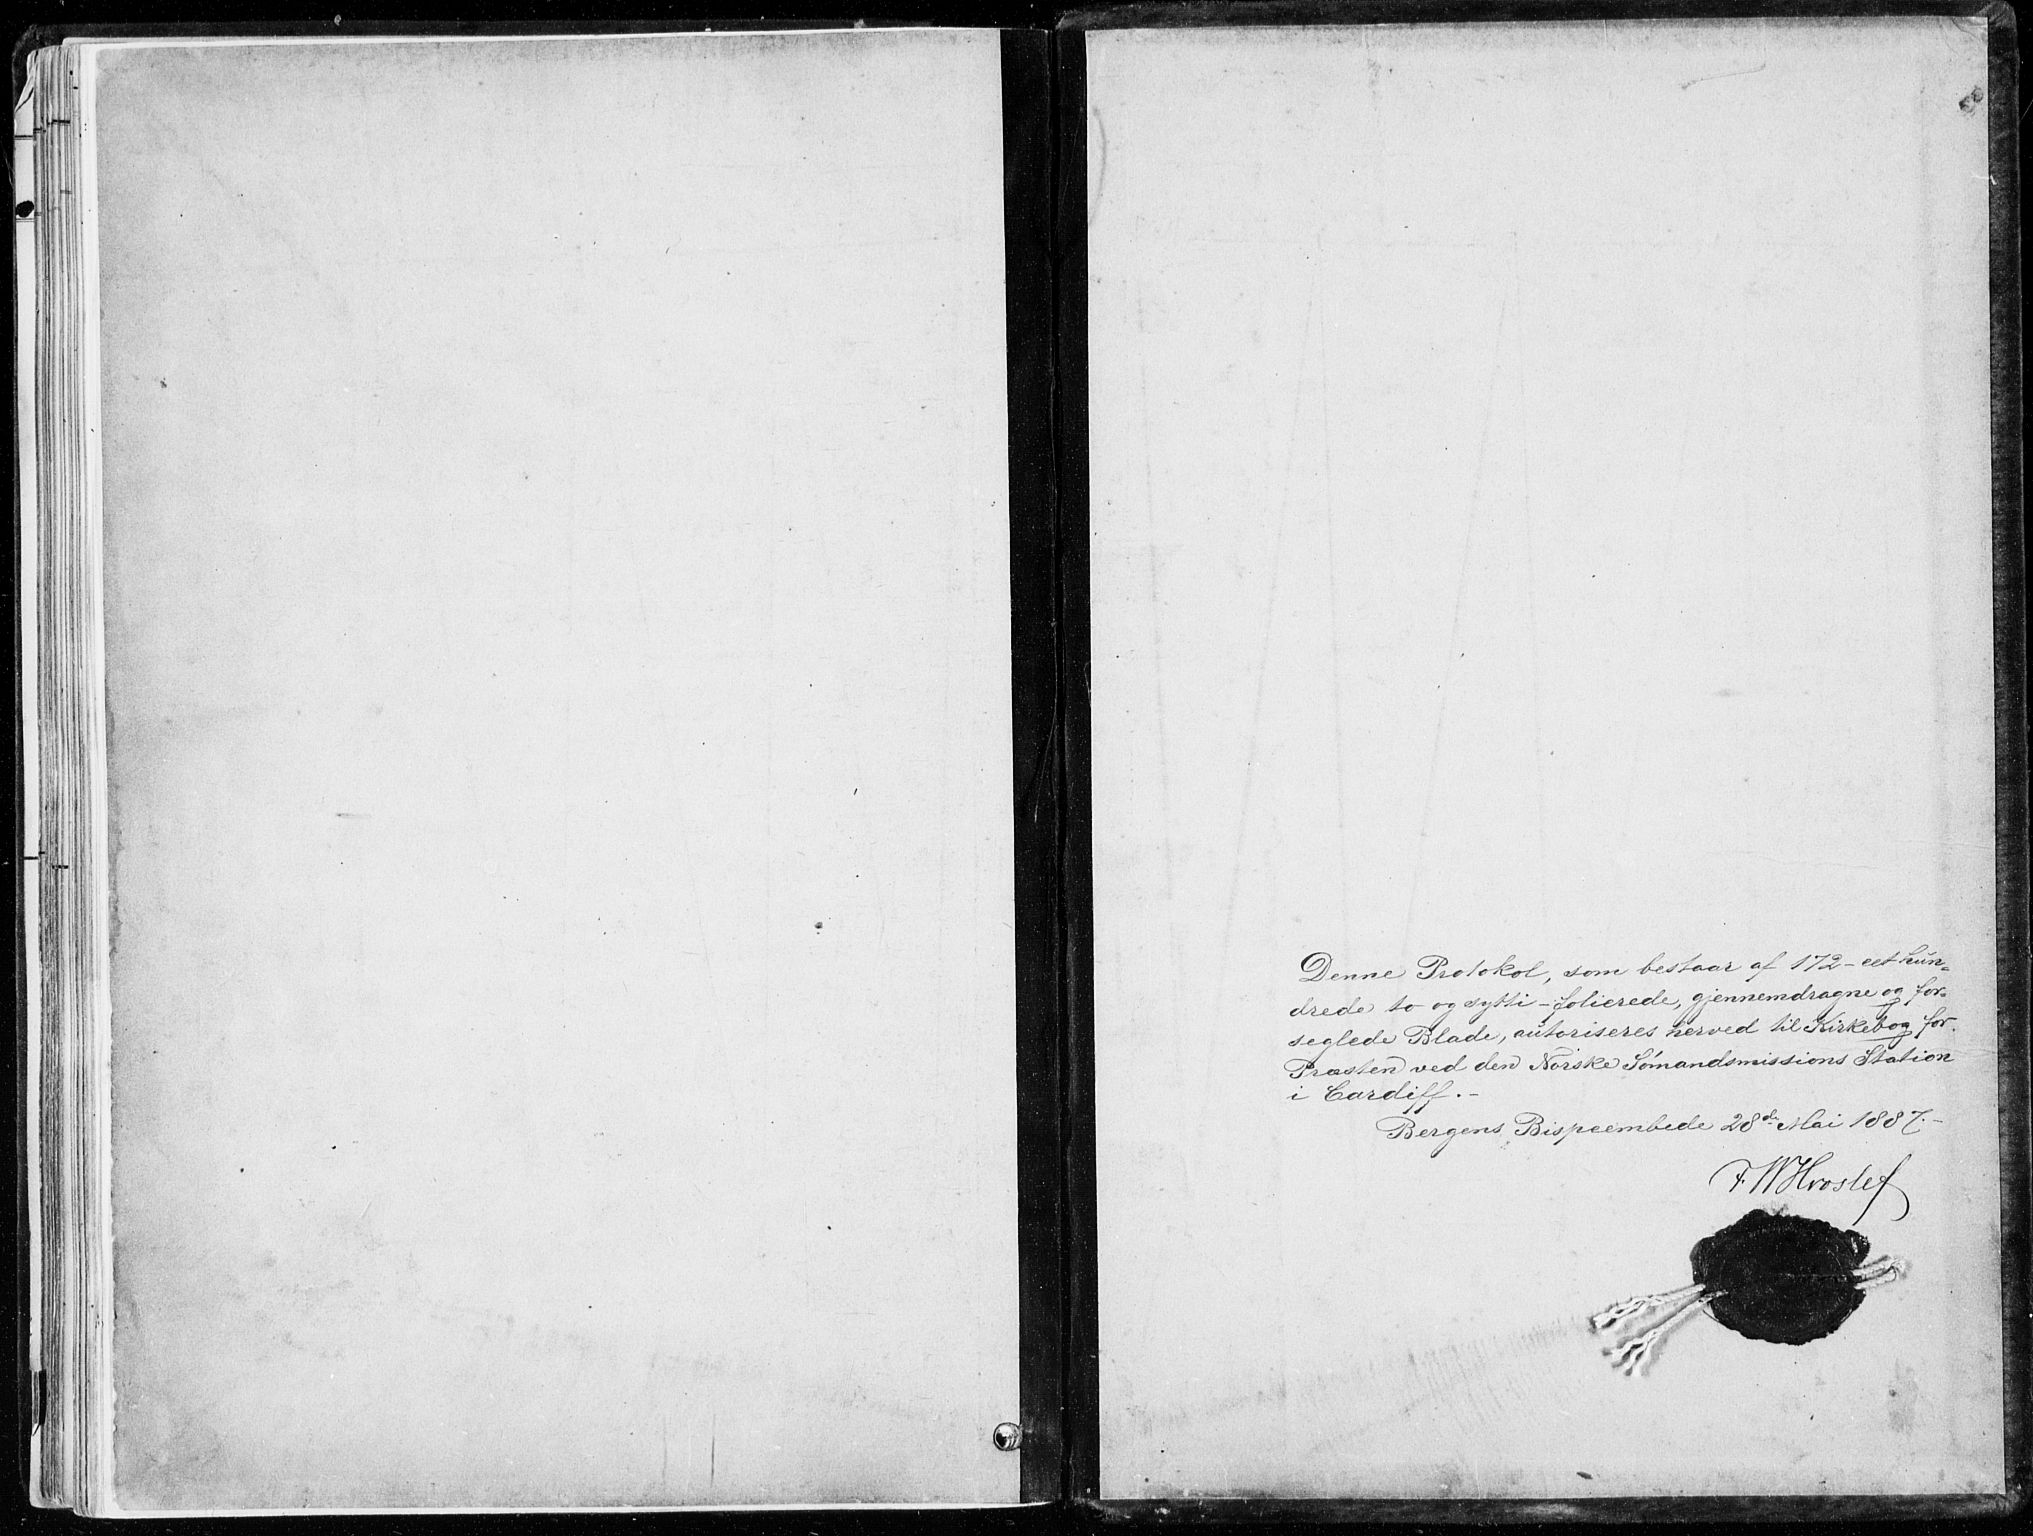 Denne Protokol, som bestaar af 172 - eet hun-
drede to og sytti - folierede, gjennemdragne og for-
seglede Blade, autoriseres herved til Kirkebog for
Præsten ved den Norske Sømandsmissions Station
i Cardiff. -
Bergens Bispeembede 28de Mai 1887. -
F W Hvoslef